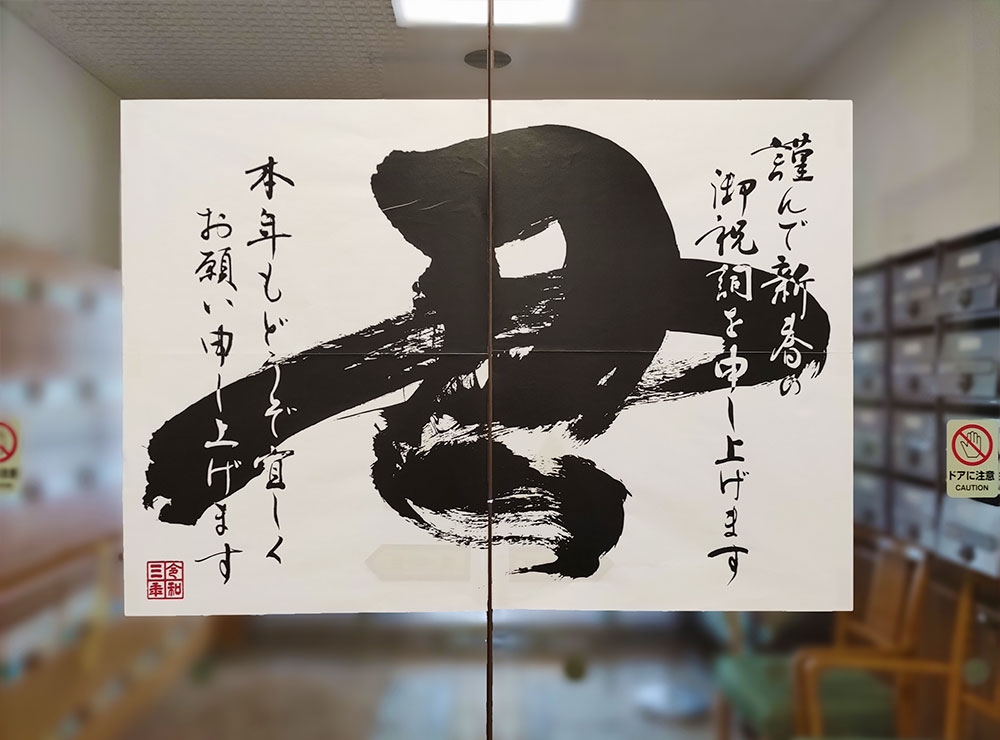 謹んで新春の
御祝詞を申し上げます
丑
本年もどうぞ宜しく
お願い申し上げます
令和
三年
ドアに注意
CAUTION